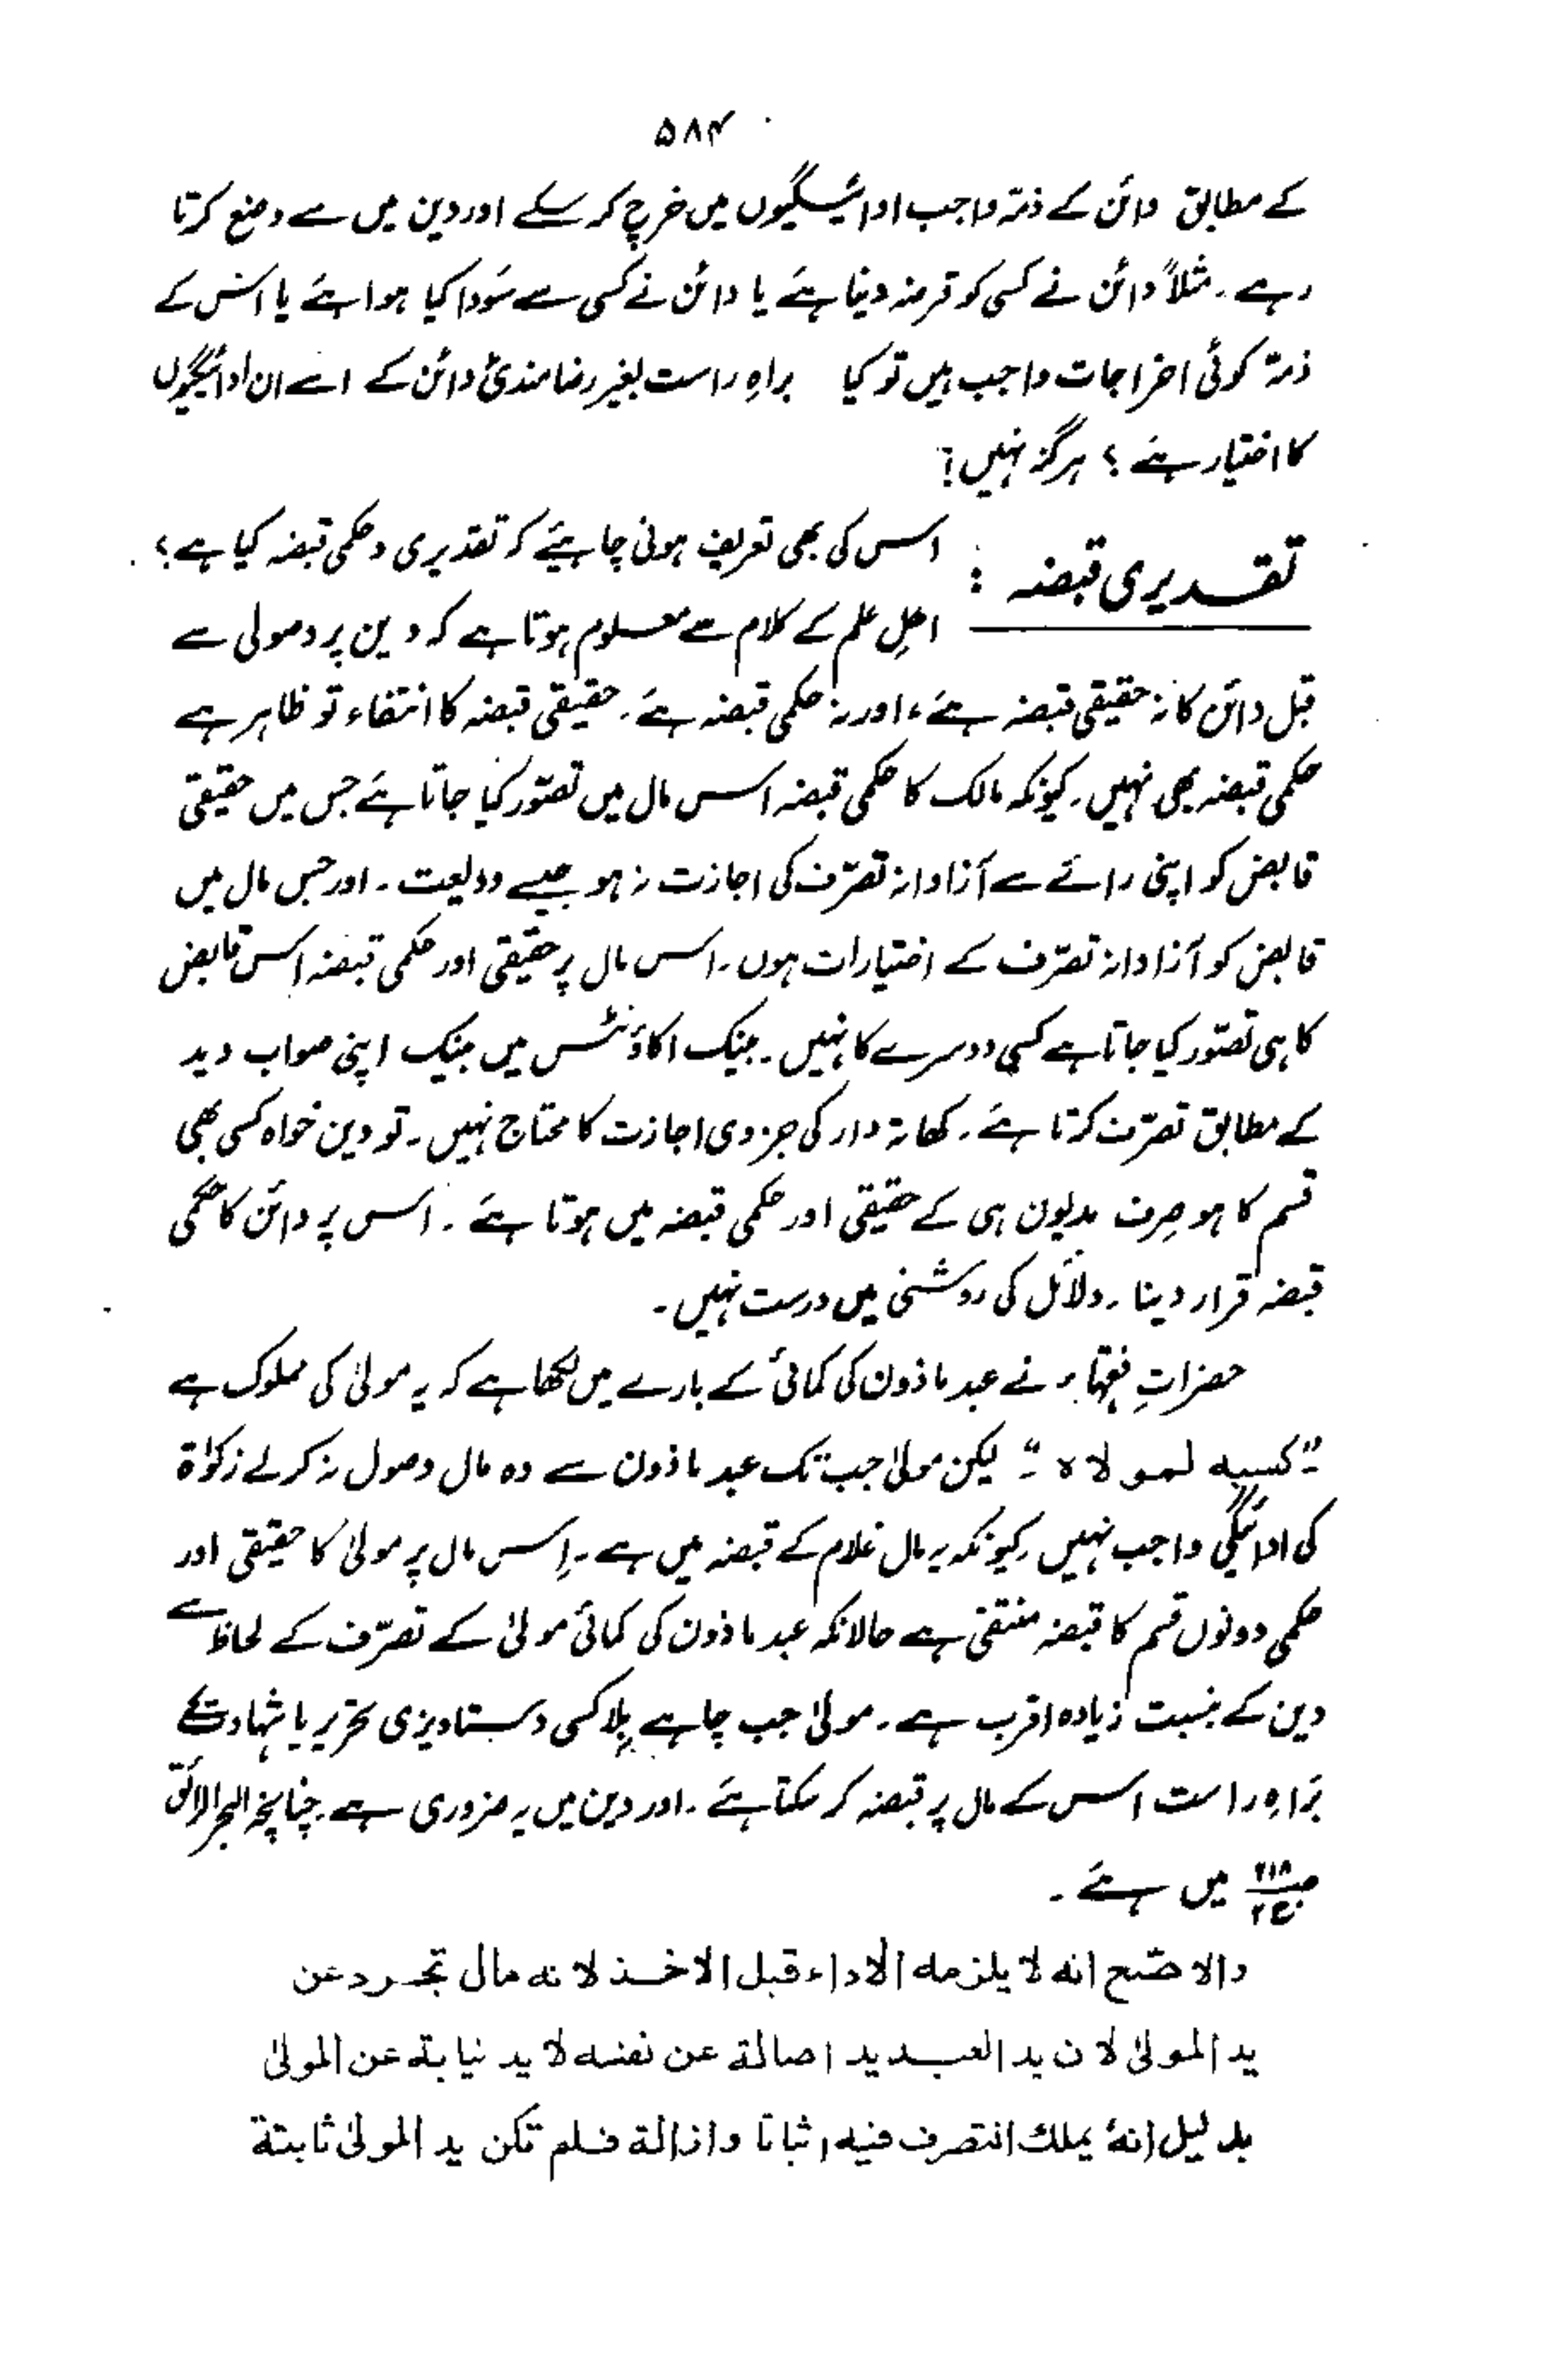 ۵۸۴
کے مطابق دائن کے ذمہ واجب ادائیگیوں میں خرچ کر سکے اور دین میں سے وضع کرتا
رہے ۔ مثلاً دائن نے کسی کو قرضہ دینا ہے یا دائن نے کسی سے سَودا کیا ہوا ہے یا اس کے
ذمہ کوئی اخراجات واجب ہیں تو کیا براہِ راست بغیر رضامندیٔ دائن کے اسے ان ادائیگیوں
کا اختیار ہے ؟ ہرگز نہیں ؟
تقدیری قبضہ : اس کی بھی تعریف ہونی چاہیئے کہ تقدیری و حکمی قبضہ کیا ہے ؟
اہلِ علم کے کلام سے معلوم ہوتا ہے کہ دین پر وصولی سے
قبل دائن کا نہ حقیقی قبضہ ہے ، اور نہ حکمی قبضہ ہے ۔ حقیقی قبضہ کا انتفاء تو ظاہر ہے
حکمی قبضہ بھی نہیں ۔ کیونکہ مالک کا حکمی قبضہ اس مال میں تصوّر کیا جاتا ہے جس میں حقیقی
قابض کو اپنی رائے سے آزادانہ تصرّف کی اجازت نہ ہو جیسے ودیعت ۔ اور جس مال میں
قابض کو آزادانہ تصرّف کے اختیارات ہوں ۔ اس مال پر حقیقی اور حکمی قبضہ اس قابض
کا ہی تصوّر کیا جاتا ہے کسی دوسرے کا نہیں ۔ بینک اکاؤنٹس میں بینک اپنی صواب دید
کے مطابق تصرّف کرتا ہے ۔ کھاتہ دار کی جزوی اجازت کا محتاج نہیں ۔ تو دین خواہ کسی بھی
قسم کا ہو صِرف مدیون ہی کے حقیقی اور حکمی قبضہ میں ہوتا ہے ۔ اس پر دائن کا حکمی
قبضہ قرار دینا ۔ دلائل کی روشنی میں درست نہیں ۔
حضراتِ فقہاء نے عبد ماذون کی کمائی کے بارے میں لکھا ہے کہ یہ مولیٰ کی مملوک ہے
"کسبہ لمولاہ" لیکن مولیٰ جب تک عبد ماذون سے وہ مال وصول نہ کر لے زکوٰۃ
کی ادائیگی واجب نہیں کیونکہ یہ مال غلام کے قبضہ میں ہے ۔ اِس مال پر مولیٰ کا حقیقی اور
حکمی دونوں قسم کا قبضہ منتفی ہے حالانکہ عبد ماذون کی کمائی مولیٰ کے تصرّف کے لحاظ سے
دین کے بنسبت زیادہ اقرب ہے ۔ مولیٰ جب چاہے بِلا کسی دستاویزی تحریر یا شہادت کے
براہِ راست اس کے مال پر قبضہ کر سکتا ہے ۔ اور دین میں یہ ضروری ہے چنانچہ البحر الرائق
ص۲۱۸ ج۲ میں ہے ۔
والاصّح انه لا يلزمه الاداء قبل الاخذ لانه مال تجرد عن
يد المولىٰ لان يد العبد يد اصالة عن نفسه لا يد نيابة عن المولىٰ
بدليل انهٗ يملك التصرف فيه اثباتا وازالة فلم تكن يد المولىٰ ثابتة